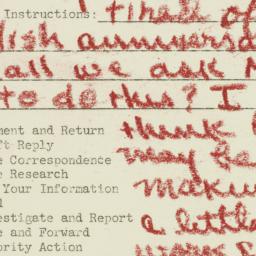 Instructions: tired of
lish anniversa
all we ask
to do this? I
ment and Return think
ft Reply
e Correspondence may be
e Research
Your Information making
l
estigate and Report a little
e and Forward
ority Action work